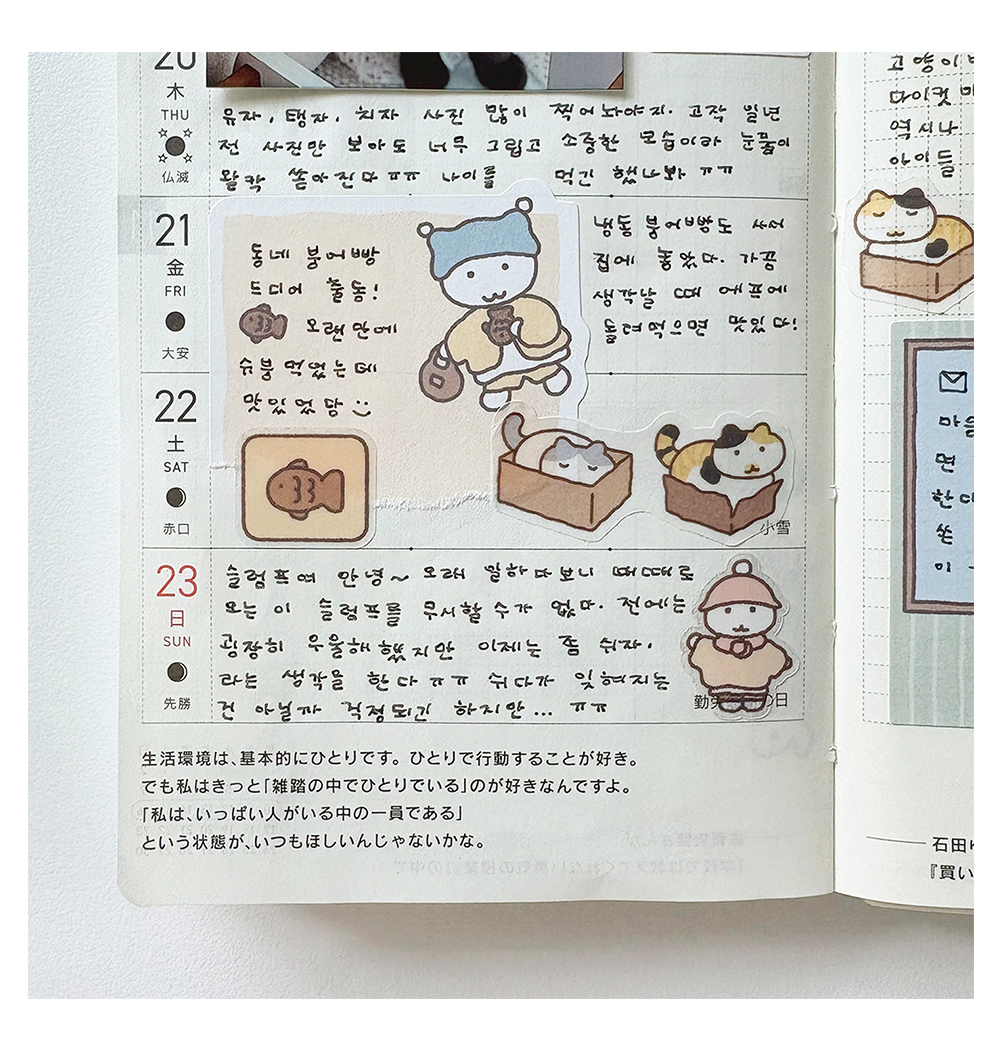 20
木
THU
仏滅
유자, 탱자, 치자 사진 많이 찍어놔야지. 고작 일년
전 사진만 보아도 너무 그립고 소중한 모습이라 눈물이
왈칵 쏟아진다ㅠㅠ 나이를 먹긴 했나봐 ㅠㅠ
21
金
FRI
大安
동네 붕어빵
드디어 출동!
오랜만에
슈붕 먹었는데
맛있었당
냉동 붕어빵도 사서
집에 놓았다. 가끔
생각날 때 에프에
돌려먹으면 맛있다!
22
土
SAT
赤口
小雪
23
日
SUN
先勝
슬럼프여 안녕~ 오래 일하다보니 때때로
오는 이 슬럼프를 무시할 수가 없다. 전에는
굉장히 우울해 했지만 이제는 좀 쉬자.
라는 생각을 한다ㅠㅠ 쉬다가 잊혀지는
건 아닐까 걱정되긴 하지만... ㅠㅠ
勤 の日
生活環境は、基本的にひとりです。ひとりで行動することが好き。
でも私はきっと「雑踏の中でひとりでいる」のが好きなんですよ。
「私は、いっぱい人がいる中の一員である」
という状態が、いつもほしいんじゃないかな。
고양이
다이컷
역시나
아이들
마음
면
한다
쏟
이
石田
『買い